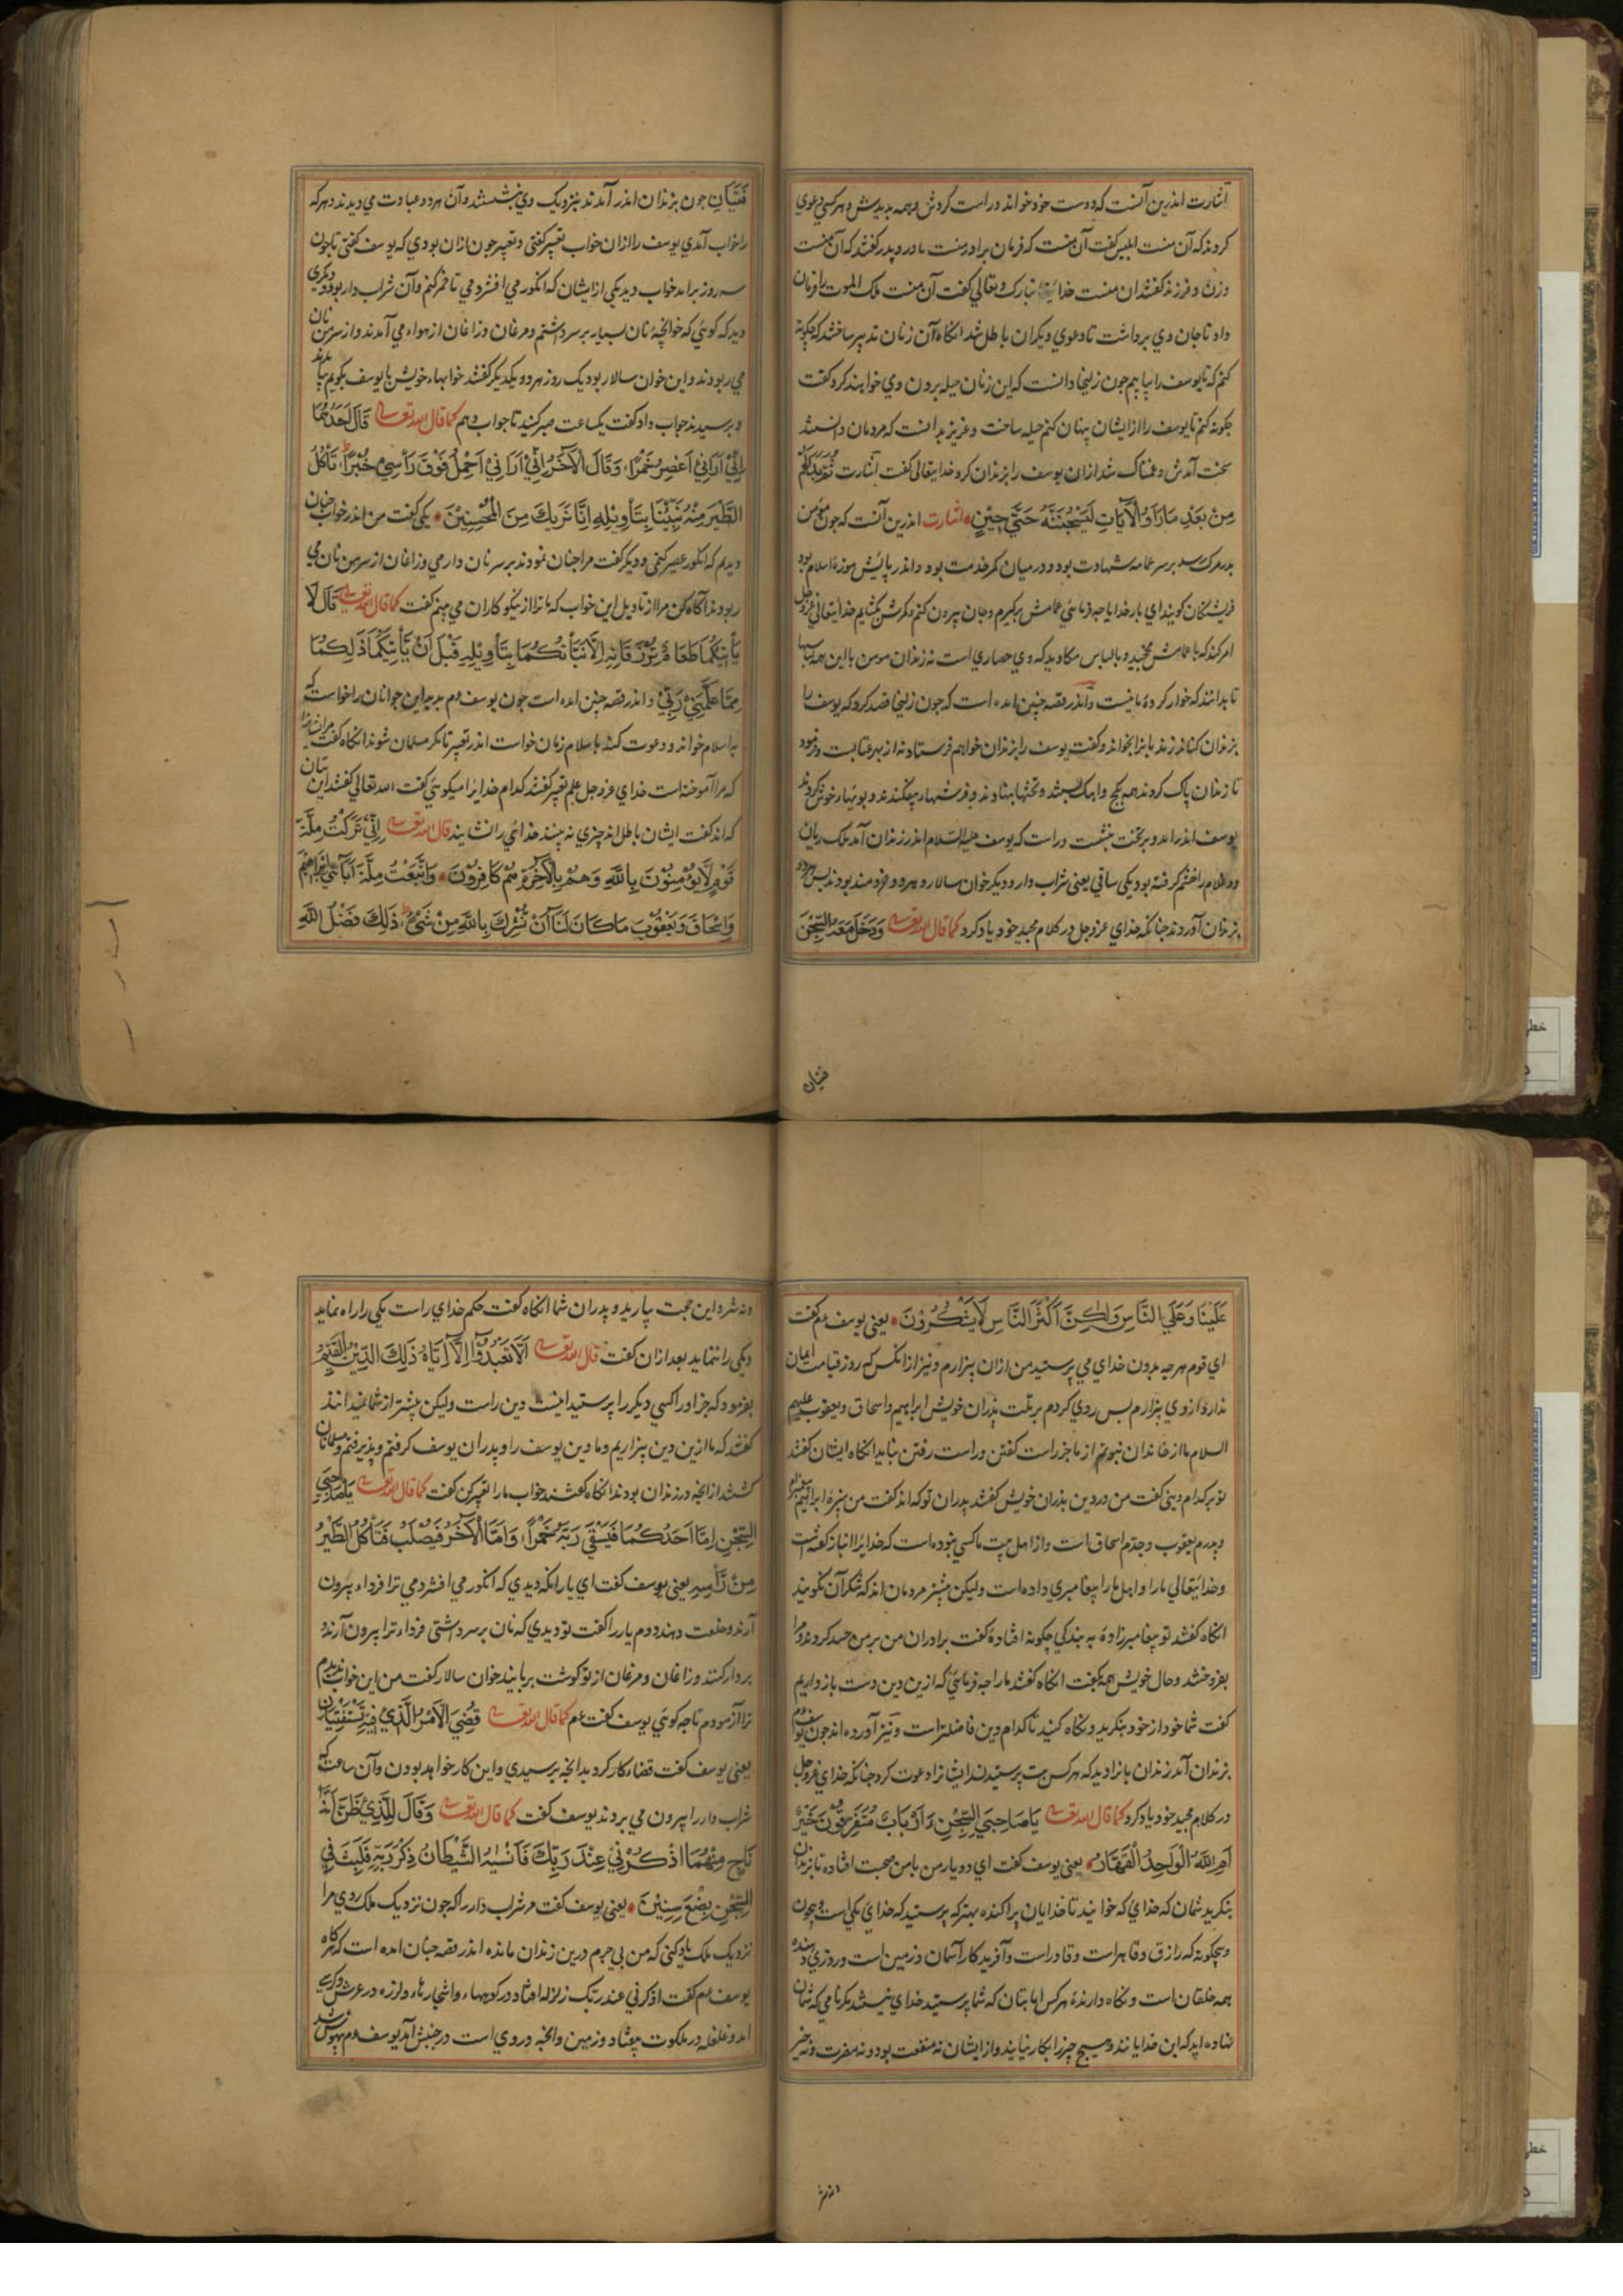 اشارت اندرین آنست که دوست خود خواند و راست کردش و همه بدیدش و هر کسی دعوی
کردند که آن منست ابلیس گفت آن منست که فرمان برادر منست مادر و پدر گفتند که آن منست
وزن و فرزند گفتند ان منست خدای تبارک و تعالی گفت آن منست ملک الموت را فرمان
داد تا جان وی برداشت تا دعوی دیگران باطل شد انکاه آن زنان تدبیر ساختند که چکونه
کنم که تا یوسف را بیابیم جون زلیخا دانست که این زنان حیله بردن وی خواهند کرد گفت
جکونه کنم تا یوسف را از ایشان پنهان کنم حیله ساخت و عزیز بدانست که مردمان دانستند
سخت آمدش و غمناک شد از ان یوسف را بزندان کرد خدایتعالی گفت اشارت ثُمَّ بَدَا لَهُمْ
مِنْ بَعْدِ مَا رَاَوُا الْآيَاتِ لَيَسْجُنُنَّهُ حَتَّي حِيْنٍ اشارت اندرین آنست که جون مؤمن
بدر مرک رسد بر سر عمامه شهادت بود و در میان کمر خدمت بود و اندر پایش موزه اسلام بود
فریشتکان کویند ای بار خدایا چه فرمائی عمامش برگیرم و جان بیرون کنم و کمرش بگشایم خدایتعالی عزوجل
امر کند که با عمامش مجنبید و با لباس مکاوید که وی حصاری است نه زندان مومن با این همه لباسها
تا بدانند که خوار کرده ما نیست و اندر قصه چنین امده است که جون زلیخا قصد کرد که یوسف را
بزندان کناند زندبانرا بخواند و گفت یوسف را بزندان خواهم فرستاد نه از بهر عتابست و فرمود
تا زندان پاک کردند همه بکج و اهک ببستند و تختها بنهادند و فرشها بیفکندند و بویها خوش کردند
یوسف اندر امد و بر تخت بنشست و راست که یوسف علیه السلام اندر زندان آمد ملک ریان
دو غلام را خشم گرفته بود یکی ساقی یعنی شراب دار و دیکر خوان سالار و هر دو خردمند بودند پس هر دو
بزندان آوردند چنانکه خدای عزوجل در کلام مجید خود یاد کرد کما قال الله تعالی وَدَخَلَ مَعَهُ السِّجْنَ
فتیان
فَتَيَانِ جون بزندان اندر آمدند بنزدیک وی بنشستند و آن هر دو عبادت می دیدند و هر که
را خواب آمدی یوسف را از ان خواب تعبیر گفتی و تعبیر جون از ان بودی که یوسف گفتی تا جون
سه روز برامد خواب دید یکی از ایشان که انکور می افشردمی تا خمر کنم و آن شراب دار بود و دیکری
دید که کوئی که خوانچه نان بسیار بر سر داشتم و مرغان و زاغان از هوا می آمدند و از سر من نان
می ربودند و این خوان سالار بود یک روز هر دو یکدیکر گفتند خوابهاء خویش با یوسف بکویم بیامدند
و برسیدند جواب داد گفت یک ساعت صبر کنید تا جواب دهم کما قال الله تعالی قَالَ اَحَدُهُمَا
اِنِّي اَرَانِي اَعْصِرُ خَمْرًا وَقَالَ الْآخَرُ اِنِّي اَرَانِي اَحْمِلُ فَوْقَ رَأْسِي خُبْزًا تَأْكُلُ
الطَّيْرُ مِنْهُ نَبِّئْنَا بِتَأْوِيْلِهِ اِنَّا نَرٰيكَ مِنَ الْمُحْسِنِيْنَ یکی گفت من اندر خواب چنان
دیدم که انکور عصیر کنمی و دیکر گفت مرا چنان نمودند بر سر نان دارمی و زاغان از سر من نان می
ربودند آگاه کن مرا از تاویل این خواب که ما ترا از نیکوکاران می بینم گفت کما قال الله تعالی قَالَ لَا
يَأْتِيْكُمَا طَعَامٌ تُرْزَقَانِهِ اِلَّا نَبَّأْتُكُمَا بِتَأْوِيْلِهِ قَبْلَ اَنْ يَأْتِيَكُمَا ذٰلِكُمَا
مِمَّا عَلَّمَنِيْ رَبِّيْ و اندر قصه چنین امده است جون یوسف عم بدید این جوانان را خواست که
به اسلام خواند و دعوت کند با سلام زبان خواست اندر تعبیر تا مکر مسلمان شوند انکاه گفت مر ایشانرا
که مرا آموخته است خدای عزوجل علم تعبیر گفتند کدام خدایرا میکوئی گفت الله تعالی گفتند این بتان
که اند گفت ایشان باطل اند چیزی نه بینند خدائی را نشایند قال الله تعالی اِنِّي تَرَكْتُ مِلَّةَ
قَوْمٍ لَا يُؤْمِنُوْنَ بِاللّٰهِ وَهُمْ بِالْآخِرَةِ هُمْ كَافِرُوْنَ وَاتَّبَعْتُ مِلَّةَ اٰبَآئِيْ اِبْرَاهِيْمَ
وَاِسْحَاقَ وَيَعْقُوْبَ مَا كَانَ لَنَا اَنْ نُشْرِكَ بِاللّٰهِ مِنْ شَيْءٍ ذٰلِكَ فَضْلُ اللّٰهِ
عَلَيْنَا وَعَلَي النَّاسِ وَلٰكِنَّ اَكْثَرَ النَّاسِ لَا يَشْكُرُوْنَ یعنی یوسف عم گفت
ای قوم هر چه بدون خدای می پرستید من از ان بیزارم و نیز از انکس که روز قیامت ایمان
ندارد از وی بیزارم پس روی کردم بر ملت پدران خویش ابراهیم و اسحاق و یعقوب علیهم
السلام ما از خاندان نبوتیم از ما جز راست گفتن و راست رفتن نیاید انکاه ایشان گفتند
تو بر کدام دینی گفت من در دین پدران خویش گفتند پدران تو که اند گفت من نبیره ابراهیم پیغامبرم
و پدرم یعقوب و جدم اسحاق است و از اهل بیت ما کسی نبوده است که خدایرا انباز گفته است
و خدایتعالی مارا و اهل مارا پیغامبری داده است ولیکن بیشتر مردمان اند که شکر آن نکویند
انکاه گفتند تو پیغامبرزاده به بندگی چکونه افتاده گفت برادران من بر من حسد کردند و مرا
بفروختند و حال خویش همه بگفت انکاه گفتند مارا چه فرمائی که ازین دین دست باز داریم
گفت شما خود از خود بنکرید و نکاه کنید تا کدام دین فاضلتر است و نیز آورده اند جون یوسف عم
بزندان آمد زندان بانرا دید که هر کس بت پرستیدند ایشانرا دعوت کرد چنانکه خدای عزوجل
در کلام مجید خود یاد کرد کما قال الله تعالی يَا صَاحِبَيِ السِّجْنِ ءَاَرْبَابٌ مُتَفَرِّقُوْنَ خَيْرٌ
اَمِ اللّٰهُ الْوَاحِدُ الْقَهَّارُ یعنی یوسف گفت ای دو یار من با من صحبت افتاده تا بزندان
بنکرید شمان که خدای که خوانید تا خدایان پراکنده بهتر که پرستید که خدای یکی است و بیچون
و بیچکونه که رازق و قاهر است و قادر است و آفریدکار آسمان و زمین است و روزی دهنده
همه خلقان است و نکاه دارنده هر کس اما بتان که شما پرستید خدای نیستند مکر نامی که شمان
نهاده اید که این خدایانند و هیچ چیز را بکار نیایند و از ایشان نه منفعت بود و نه مضرت و نه خیر
و نه شر
و نه شر و این حجت بیارید و پدران شما انکاه گفت حکم خدای راست یکی را راه نماید
و یکی را ننماید بعد از ان گفت قال الله تعالی اَلَّا تَعْبُدُوْا اِلَّا اِيَّاهُ ذٰلِكَ الدِّيْنُ الْقَيِّمُ
بفرمود که جز او را کسی دیکر را پرستید اینست دین راست ولیکن بیشتر از شما نمیدانند
گفتند که ما ازین دین بیزاریم و ما دین یوسف را و پدران یوسف گرفتم و پذیرفتم و مسلمانان
گشتند از انچه در زندان بودند انکاه گفتند خواب مارا تعبیر کن گفت کما قال الله تعالی يَا صَاحِبَيِ
السِّجْنِ اِمَّا اَحَدُكُمَا فَيَسْقِي رَبَّهُ خَمْرًا وَاَمَّا الْآخَرُ فَيُصْلَبُ فَتَأْكُلُ الطَّيْرُ
مِنْ رَّأْسِهِ یعنی یوسف گفت ای یار انکه دیدی که انکور می افشردمی ترا فردا بیرون
آرند و خلعت دهند دوم یار را گفت تو دیدی که نان بر سر داشتی فردا ترا بیرون آرند و
بردار کنند و زاغان و مرغان از تو کوشت بربایند خوان سالار گفت من این خواب ندیدم
ترا آزمودم تا چه کوئی یوسف گفت عم کما قال الله تعالی قُضِيَ الْاَمْرُ الَّذِي فِيْهِ تَسْتَفْتِيَانِ
یعنی یوسف گفت قضا کار کرد بدانچه برسیدی و این کار خواهد بودن و آن ساعت که
شراب دار را بیرون می بردند یوسف گفت کما قال الله تعالی وَقَالَ لِلَّذِيْ ظَنَّ اَنَّهُ
نَاجٍ مِنْهُمَا اذْكُرْنِيْ عِنْدَ رَبِّكَ فَاَنْسٰيهُ الشَّيْطَانُ ذِكْرَ رَبِّهِ فَلَبِثَ فِي
السِّجْنِ بِضْعَ سِنِيْنَ یعنی یوسف گفت مر شراب دار را که جون نزدیک ملک روی مرا
نزدیک ملک یاد کنی که من بی جرم درین زندان مانده اندر قصه چنان امده است که هر کاه
یوسف عم گفت اذکرنی عند ربک زلزله افتاد در کوهها و اشجارها و لرزه در عرش و کرسی
امد و غلغله در ملکوت بیفتاد و زمین و انچه در وی است در جنبش آمد یوسف عم بیهوش شد